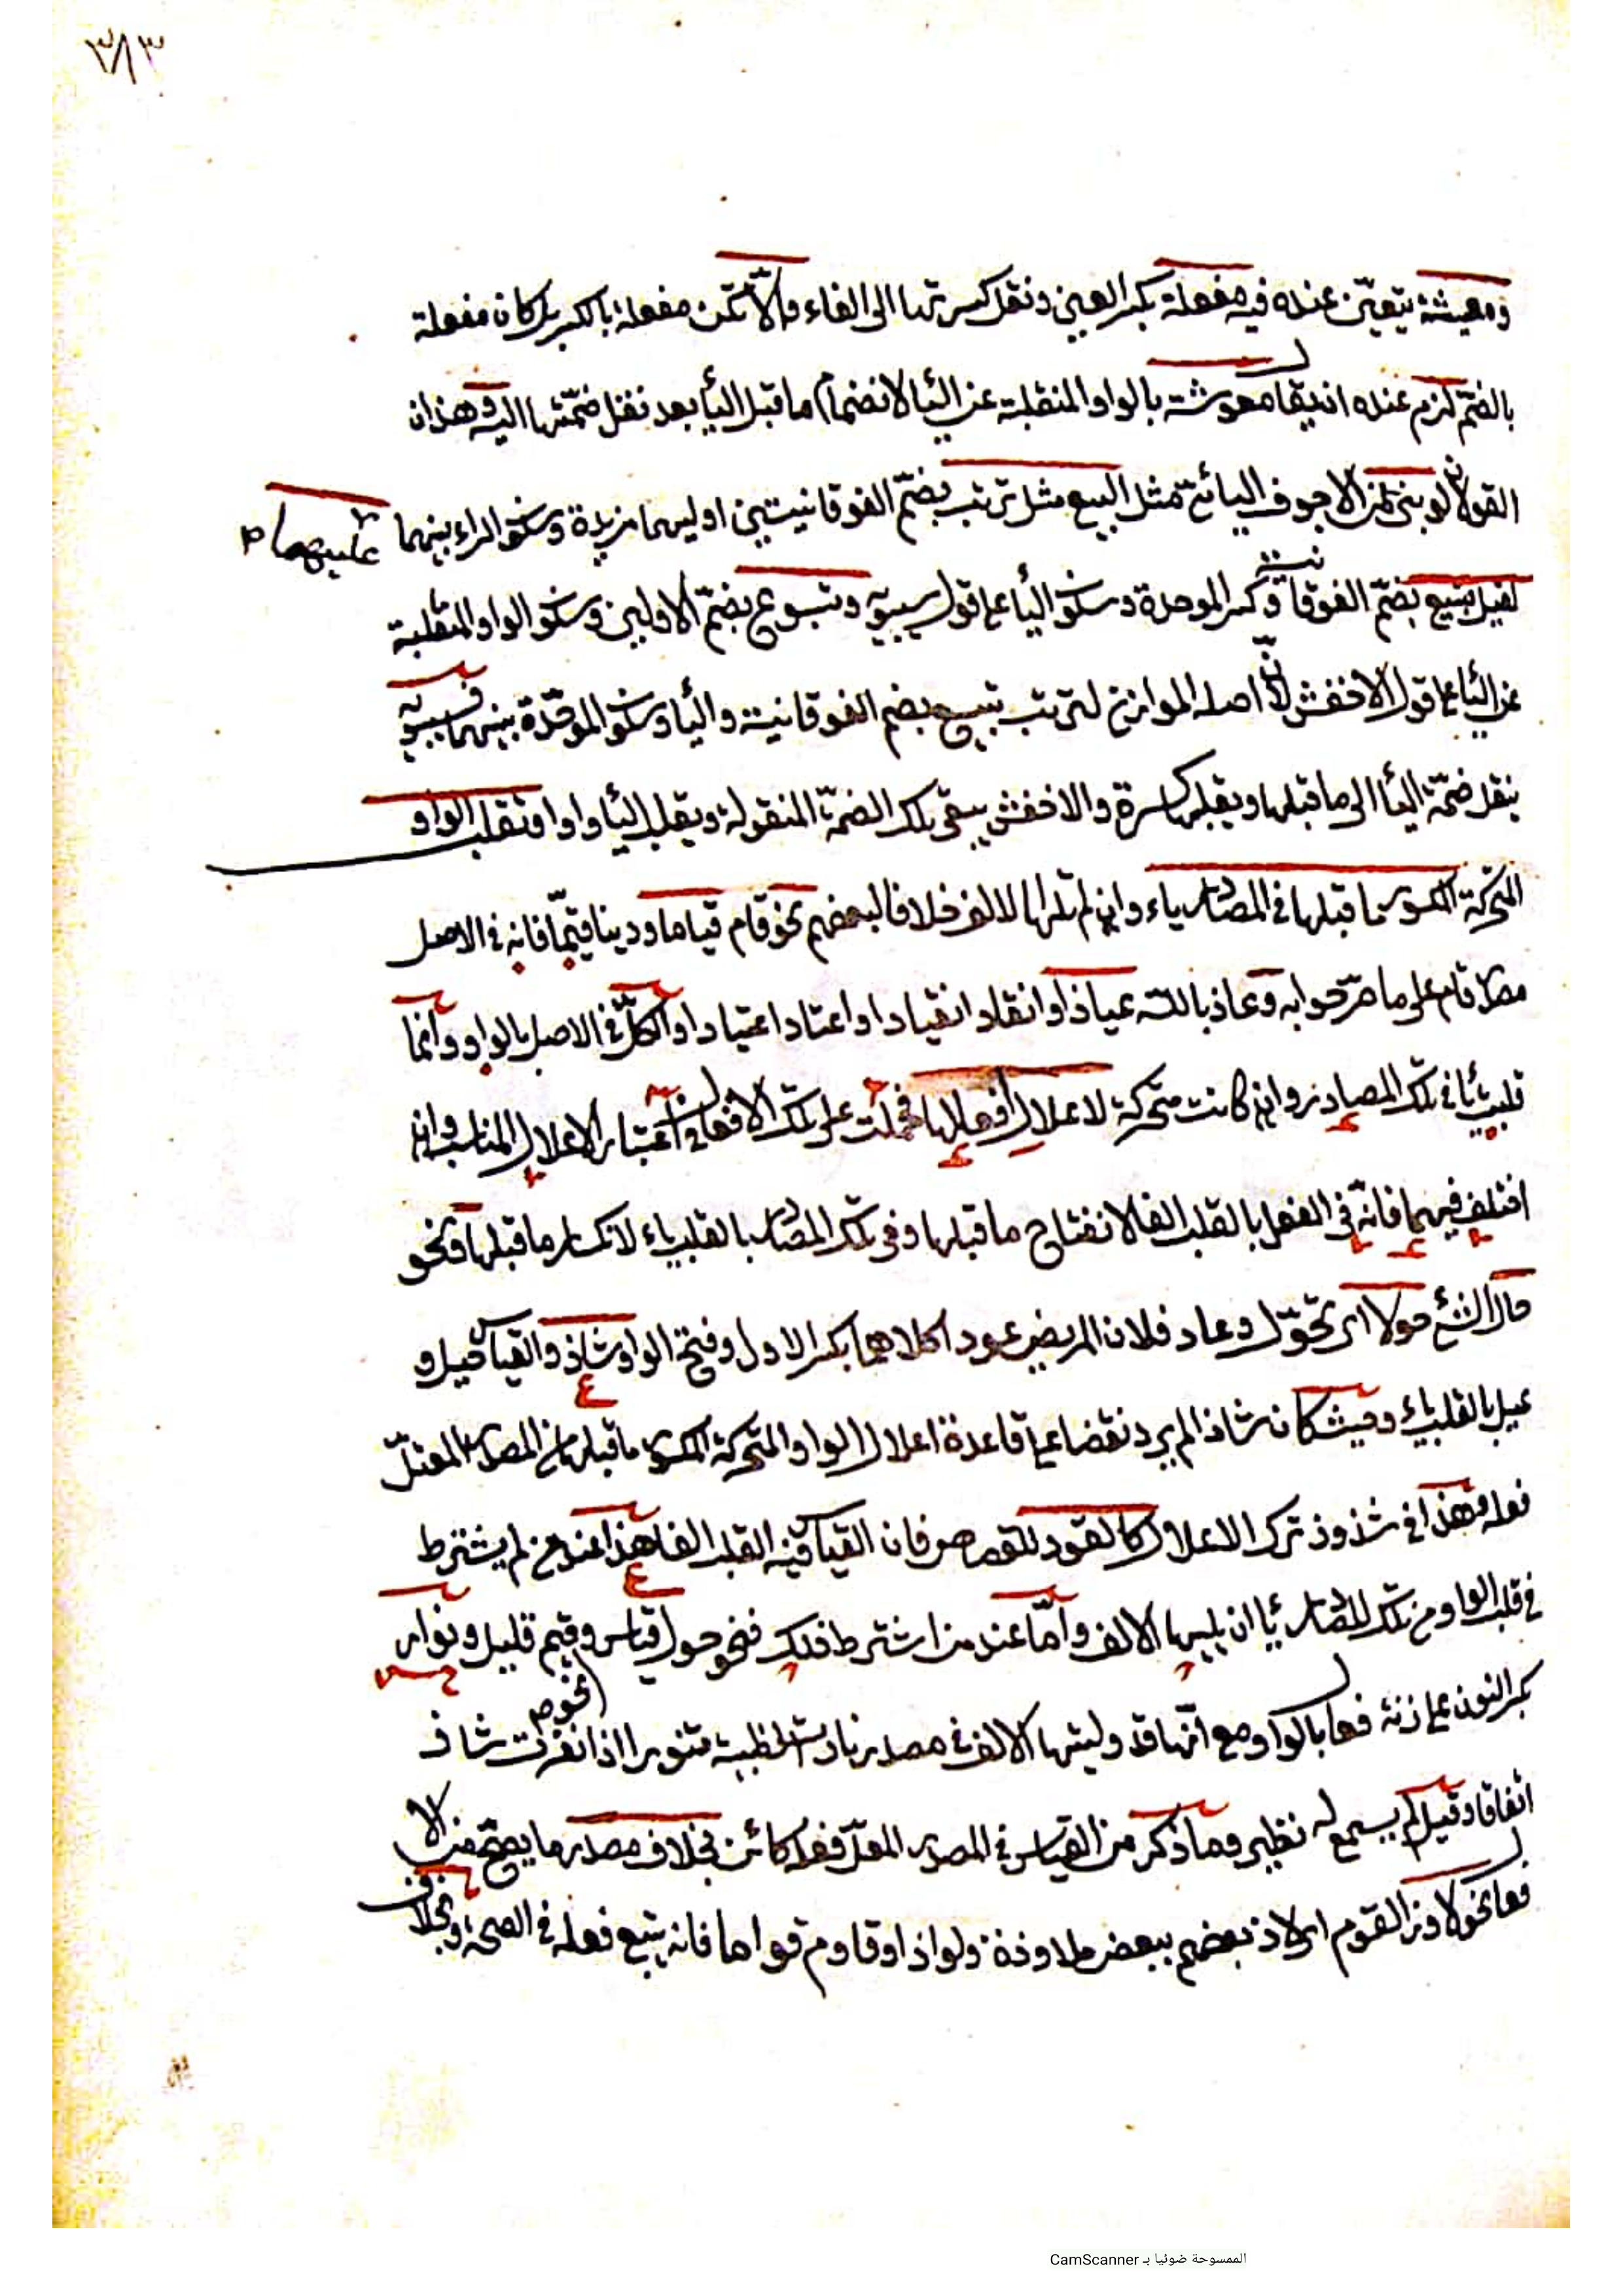 ٣٨٣
ومعيشة يتعيّن عنده فيه مفعلة بكسر العين ونقل كسرتها الى الفاء والّا تكن مفعلة بالكسر بل كان مفعلة
بالضمّ لزم عنده ان يقال معوشة بالواو المنقلبة عن اليأ لانضمام ما قبل اليأ بعد نقل ضمّتها اليه وهذان
القولان لو بنى من الاجوف اليائى مثل البيع مثل ترتب بضمّ الفوقانيتين اوليهما مزيدة وسكون الراء بينهما عليهما
لقيل تبيع بضمّ الفوقانية وكسر الموحدة وسكون اليأ على قول سيبويه وتبوع بضمّ الاوليين وسكون الواو المنقلبة
عن اليأ على قول الاخفش لانّ اصله الموازن لترتب تبيع بضم الفوقانية واليأ وسكون الموحّدة بينهما فسيبويه
ينقل ضمّة اليأ الى ما قبلها ويقلبها كسرة والاخفش يبقى تلك الضمّة المنقولة ويقلب اليأ واوا وتقلب الواو
المتحركة المكسور ما قبلها فى المصادر ياء وان لم تلها الالف خلافا لبعضهم نحو قام قياما ودينا قيّما فانه فى الاصل
مصدر قام على ما صرّحوا به وعاذ بالله عياذا وانقاد انقيادا واعتاد اعتيادا والكلّ فى الاصل بالواو وانّما
قلبت يأ فى تلك المصادر وان كانت متحركة لاعلال افعالها فحملت على تلك الافعال فى اعتبار الاعلال المناسب وان
اختلف فيهما فانّه فى الفعل بالقلب الفا لانفتاح ما قبلها وفى تلك المصادر بالقلب ياء لانكسار ما قبلها ونحو
حال الشئ حولا اى تحوّل وعاد فلان المريض عودا كلاهما بكسر الاول وفتح الواو شاذ والقياس حيل و
عيل بالقلب ياء وحيث كان شاذا لم يرد نقضا على قاعدة اعلال الواو المتحركة المكسور ما قبلها فى المصدر المعتلّ
فعله وهذا فى شذوذ ترك الاعلال كالقود للقصاص فان القياس فيه القلب الفا هذا عند من لم يشترط
فى قلب الواو من تلك المصادر يأ ان يليها الالف وامّا عند من اشترط ذلك فنحو حول قياس وقيم قليل ونوار
بكسر النون على زنة فعال بالواو مع انّها قد وليتها الالف فى مصدر نارت الظبية تنور اذا نفرت شاذ نحو
اتفاقا وقيل لم يسمع له نظير وما ذكر من القياس فى المصدر المعلّ فعله كائن بخلاف مصدر ما يصحّ منه لا
فعال نحو لاوذ القوم اى لاذ بعضهم ببعض ملاوذة ولواذا وقاوم قواما فانه يتبع فعله فى الصحة وبخلاف
الممسوحة ضوئيا بـ CamScanner